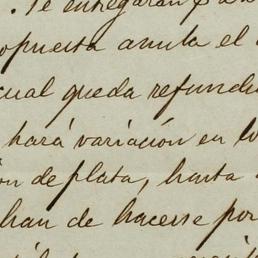 . Te entregarán
opuesta anula el
cual queda refundi
hará variación en lo
ón de plata, hasta
han de hacerse por